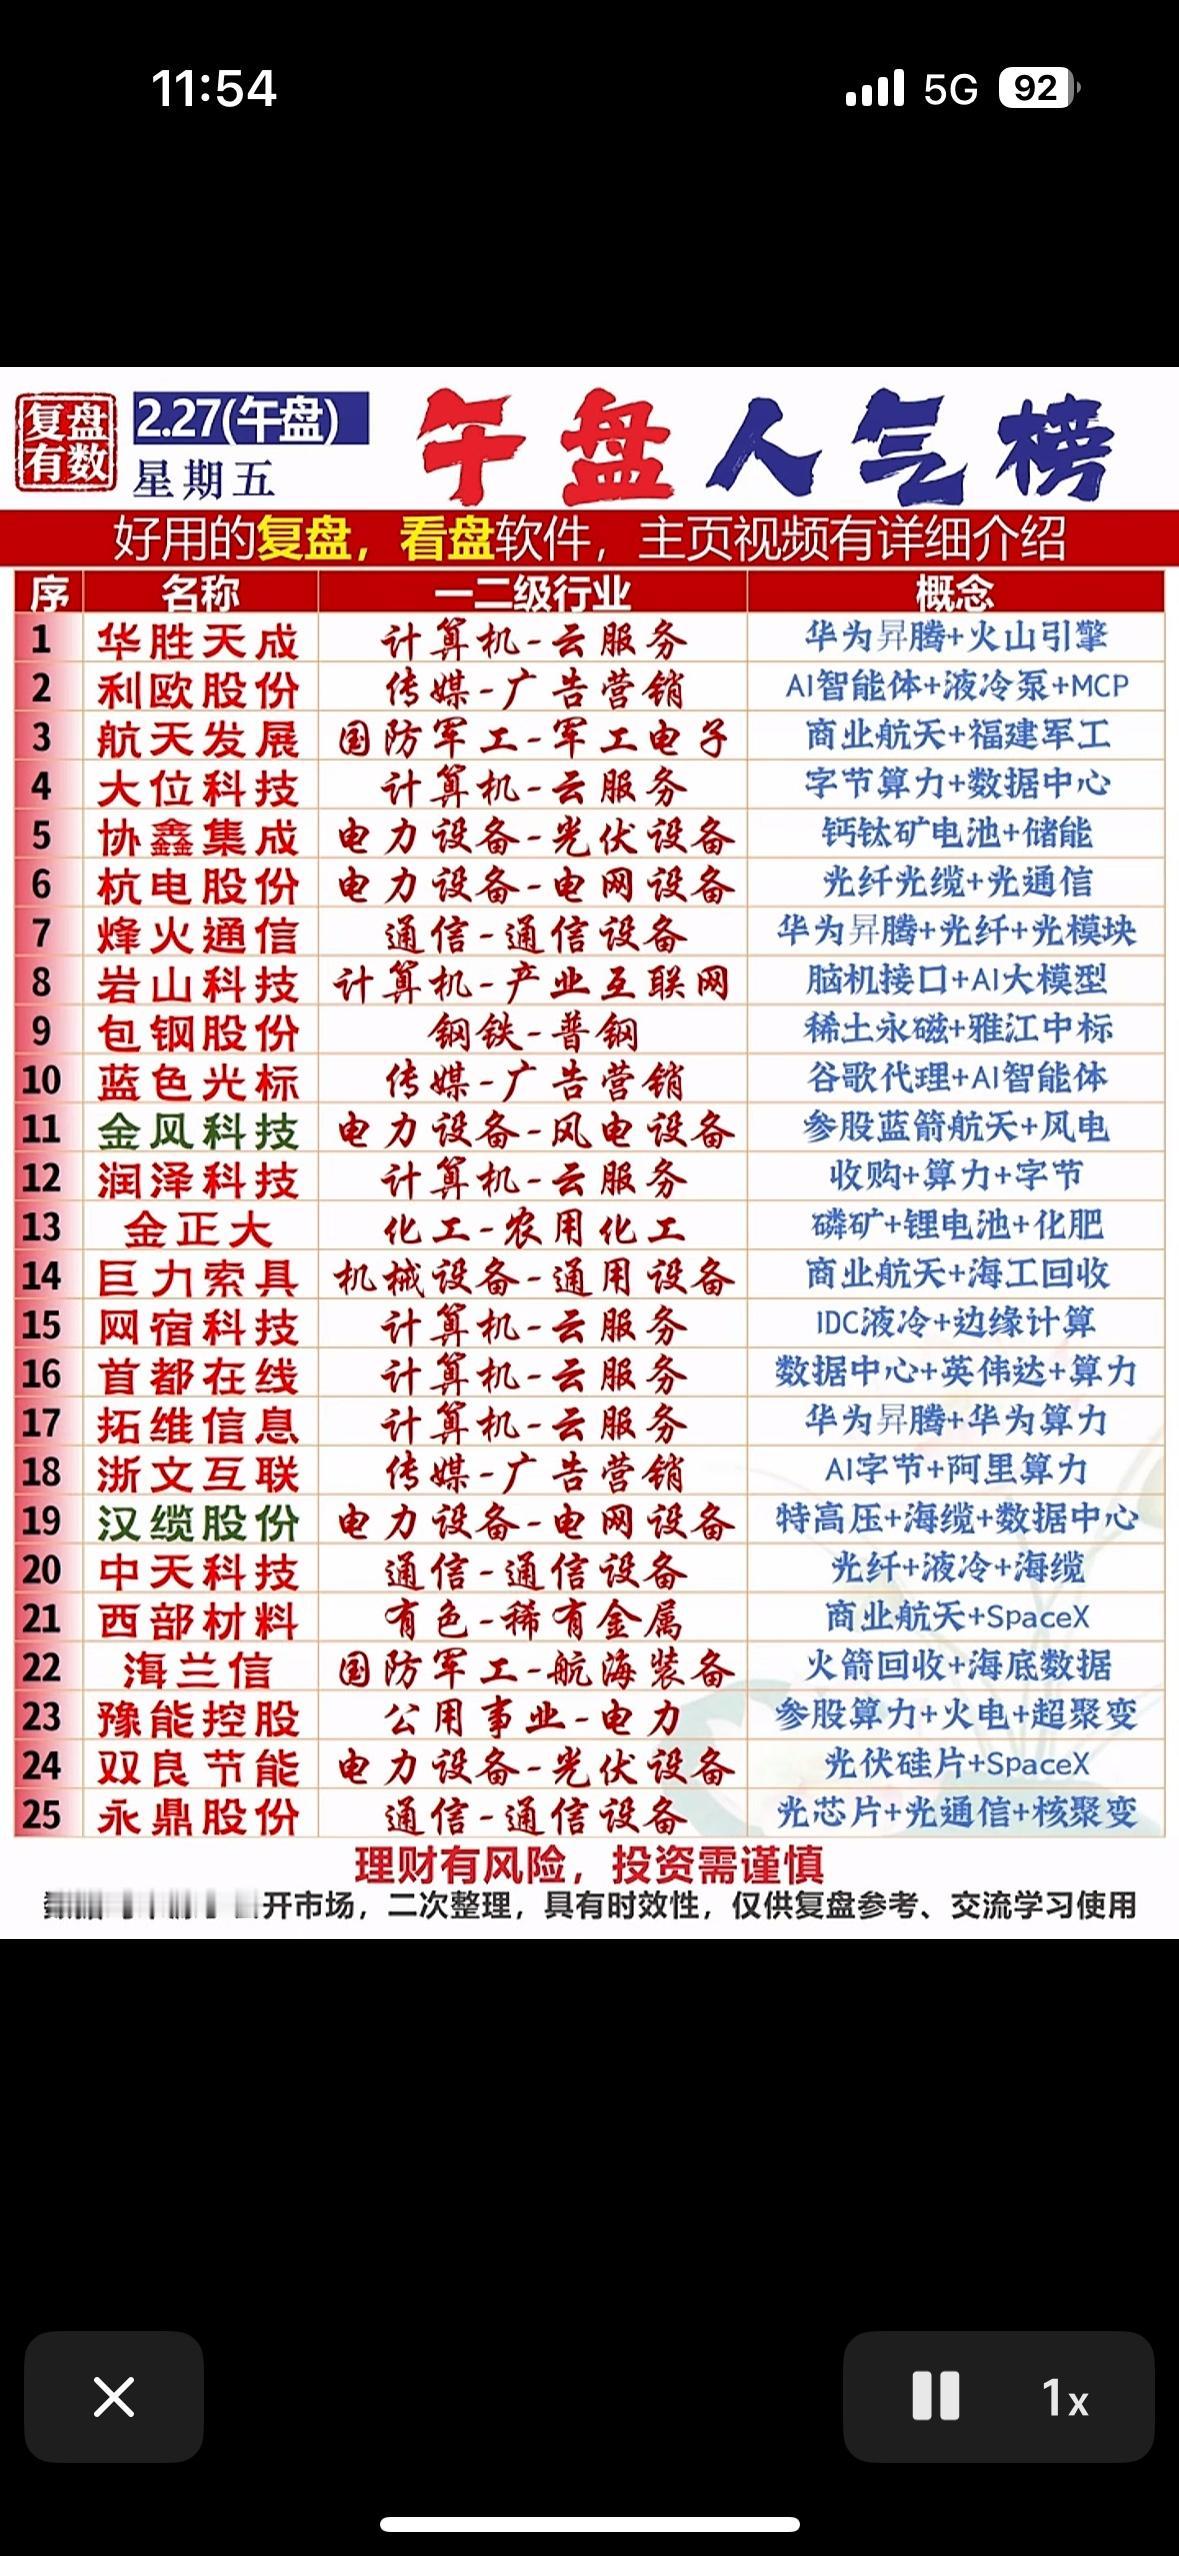 11:54
5G 92
复盘有数
2.27(午盘)
星期五
午盘人气榜
好用的复盘，看盘软件，主页视频有详细介绍
序 名称 一二级行业 概念
1 华胜天成 计算机-云服务 华为昇腾+火山引擎
2 利欧股份 传媒-广告营销 AI智能体+液冷泵+MCP
3 航天发展 国防军工-军工电子 商业航天+福建军工
4 大位科技 计算机-云服务 字节算力+数据中心
5 协鑫集成 电力设备-光伏设备 钙钛矿电池+储能
6 杭电股份 电力设备-电网设备 光纤光缆+光通信
7 烽火通信 通信-通信设备 华为昇腾+光纤+光模块
8 岩山科技 计算机-产业互联网 脑机接口+AI大模型
9 包钢股份 钢铁-普钢 稀土永磁+雅江中标
10 蓝色光标 传媒-广告营销 谷歌代理+AI智能体
11 金风科技 电力设备-风电设备 参股蓝箭航天+风电
12 润泽科技 计算机-云服务 收购+算力+字节
13 金正大 化工-农用化工 磷矿+锂电池+化肥
14 巨力索具 机械设备-通用设备 商业航天+海工回收
15 网宿科技 计算机-云服务 IDC液冷+边缘计算
16 首都在线 计算机-云服务 数据中心+英伟达+算力
17 拓维信息 计算机-云服务 华为昇腾+华为算力
18 浙文互联 传媒-广告营销 AI字节+阿里算力
19 汉缆股份 电力设备-电网设备 特高压+海缆+数据中心
20 中天科技 通信-通信设备 光纤+液冷+海缆
21 西部材料 有色-稀有金属 商业航天+SpaceX
22 海兰信 国防军工-航海装备 火箭回收+海底数据
23 豫能控股 公用事业-电力 参股算力+火电+超聚变
24 双良节能 电力设备-光伏设备 光伏硅片+SpaceX
25 永鼎股份 通信-通信设备 光芯片+光通信+核聚变
理财有风险，投资需谨慎
开市场，二次整理，具有时效性，仅供复盘参考、交流学习使用
1x